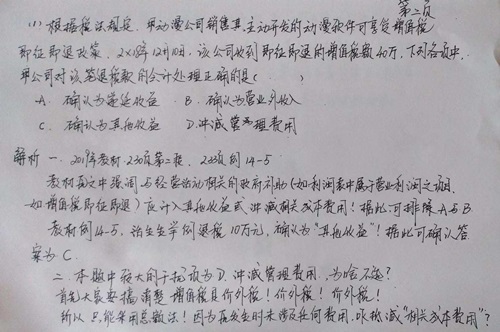 第二页
(1) 根据税法规定,甲动漫公司销售其主动开发的动漫软件可享受增值税
即征即退政策,2X18年12月10日,该公司收到即征即退的增值税税额40万,下列各项中,
甲公司对该笔退税款的会计处理正确的是( )
A. 确认为递延收益 B. 确认为营业外收入
C. 确认为其他收益 D. 冲减管理费用
解析 一、2019年教材230页第二段,233页例14-5
教材原文中强调与经营活动相关的政府补助(如利润表中属于营业利润之项目,
如增值税即征即退)应计入其他收益或冲减相关成本费用!据此可排除A与B.
教材例14-5,活生生举例退税10万元,确认为"其他收益"!据此可确认答
案为C.
二、本题中存在的干扰项为D. 冲减管理费用,为啥不选?
首先大家要搞清楚,增值税是价外税!价外税!价外税!
所以只能采用总额法!因为在发生时未涉及任何费用,咋抵减"相关成本费用"?